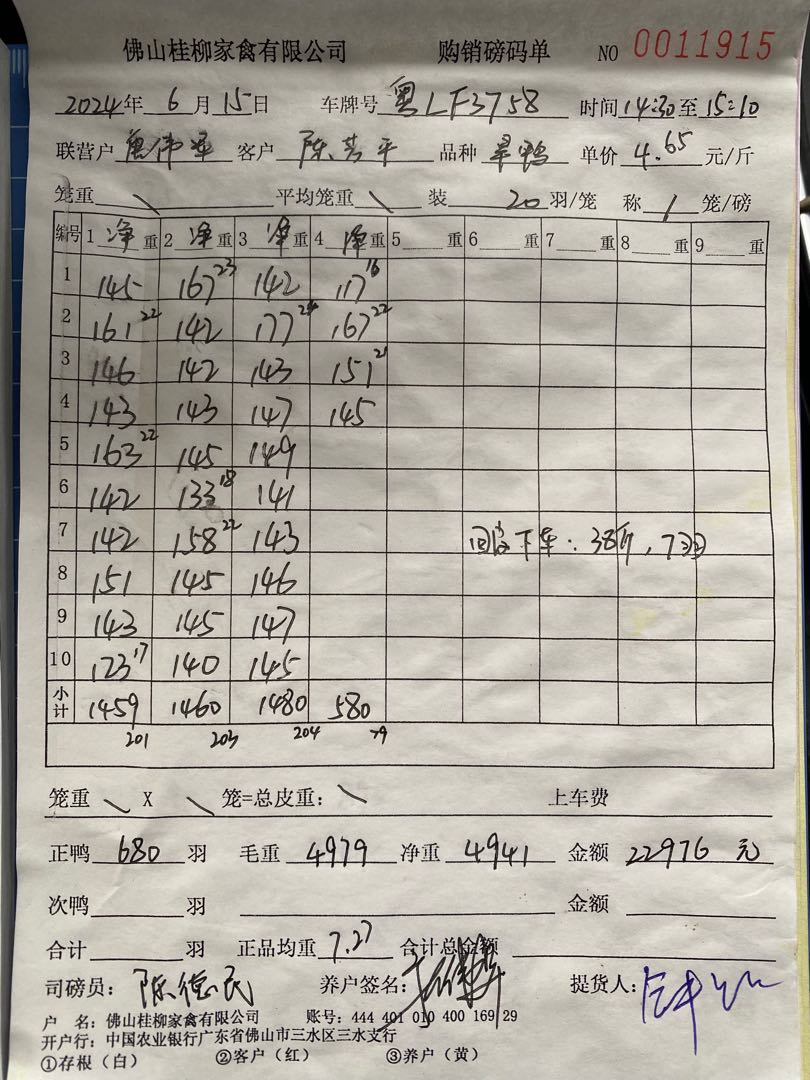 佛山桂柳家禽有限公司 购销磅码单 NO 0011915
2024年 6月15日 车牌号 粤LF3758 时间14:30至15:10
联营户 客户 陈 平 品种 旱鸭 单价 4.65 元/斤
笼重 \ 平均笼重 \ 装 20 羽/笼 称 / 笼/磅
编号 1 净 重 2 净 重 3 净 重 4 净 重 5 重 6 重 7 重 8 重 9 重
1 145 167 23 142 117 16
2 161 22 142 177 24 167 22
3 146 142 143 151 21
4 143 143 147 145
5 163 22 145 149
6 142 133 18 141
7 142 158 22 143 下车:38斤,7羽
8 151 145 146
9 143 145 147
10 123 17 140 145
小计 1459 1460 1480 580
201 203 204 79
笼重 \ X \ 笼=总皮重: \ 上车费
正鸭 680 羽 毛重 4979 净重 4941 金额 22976 元
次鸭 羽 金额
合计 羽 正品均重 7.27 合计总金额
司磅员: 陈德民 养户签名: 提货人:
户 名: 佛山桂柳家禽有限公司 账号: 444 401 010 400 169 29
开户行: 中国农业银行广东省佛山市三水区三水支行
①存根(白) ②客户(红) ③养户(黄)